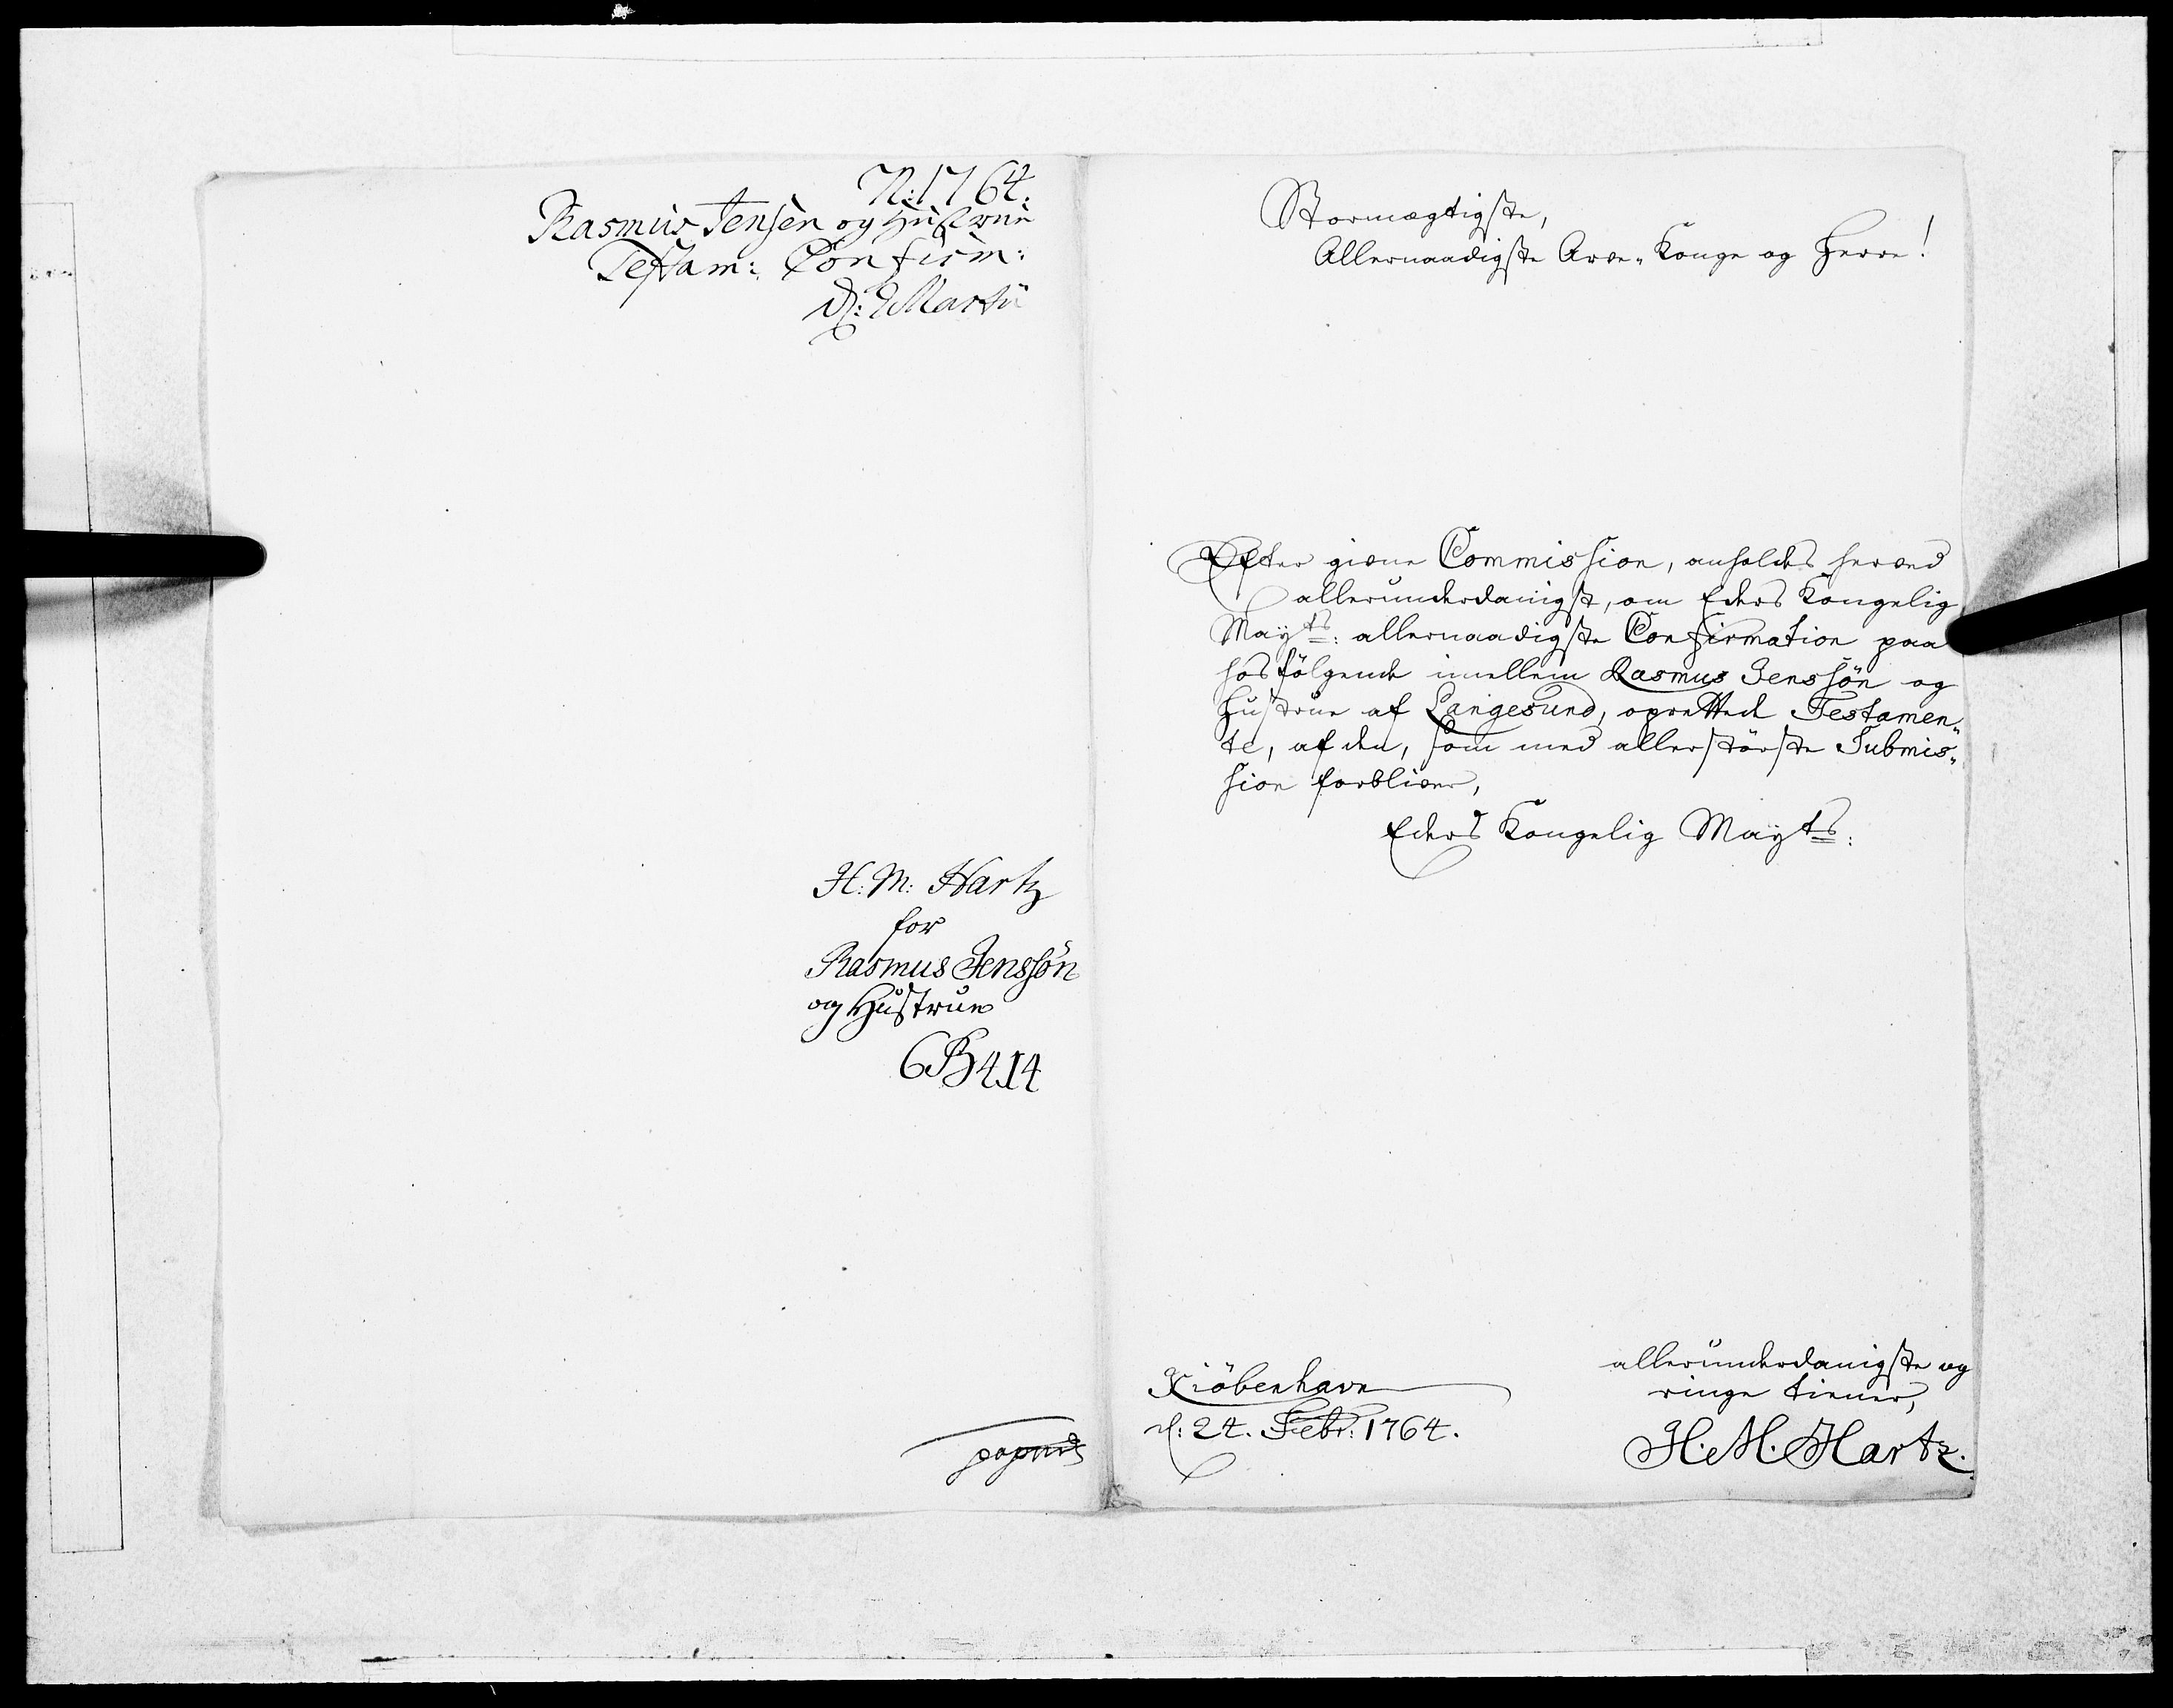 N: 1764.
Rasmus Jensen og Hustrue
Testam: Confirm:
d: 2 Martii
H: M: Hartz
for
Rasmus Jenssön
og Hustrue
6B414
Stormægtigste,
Allernaadigste Arve-Konge og Herre!
Efter givne Commission, anholdes herved
allerunderdanigst, om Eders Kongelig
Mayts: allernaadigste Confirmation paa
hosfölgende imellem Rasmus Jenssön og
Hustrue af Langesund, oprettede Testamen„
te, af den, som med allerstörste Submis„
sion forbliver,
Eders Kongelig Mayts:
allerunderdanigste og
ringe tiener,
H. M. Hartz.
Kiöbenhavn
d: 24. Febr: 1764.